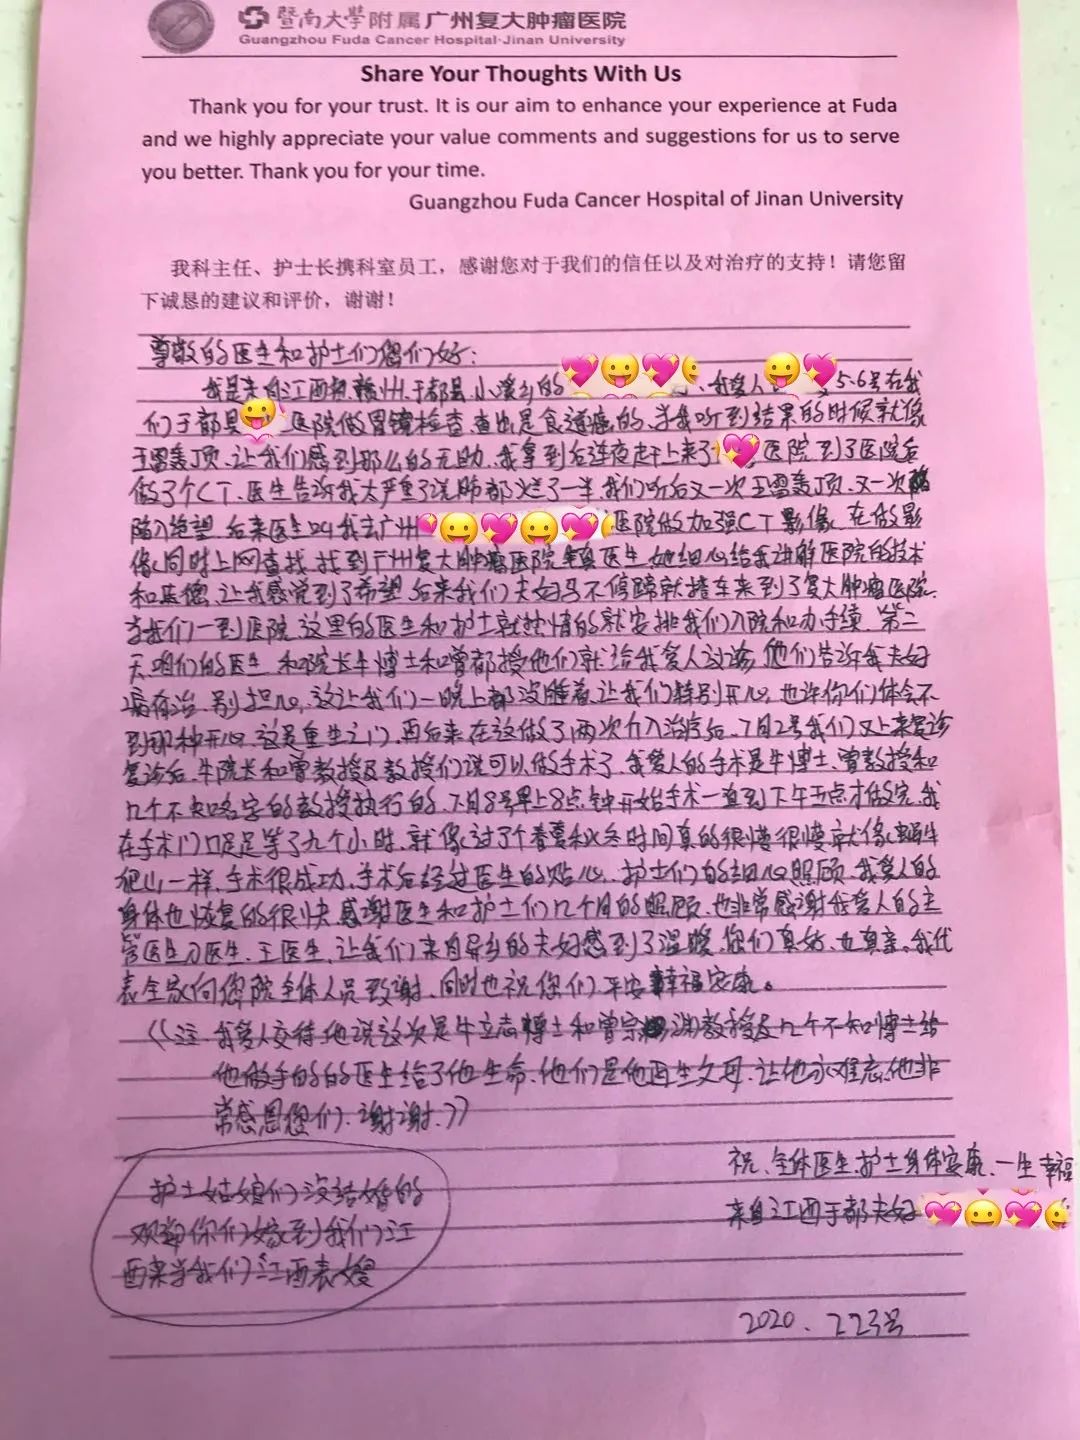 暨南大学附属广州复大肿瘤医院
Guangzhou Fuda Cancer Hospital·Jinan University
Share Your Thoughts With Us
Thank you for your trust. It is our aim to enhance your experience at Fuda
and we highly appreciate your value comments and suggestions for us to serve
you better. Thank you for your time.
Guangzhou Fuda Cancer Hospital of Jinan University
我科主任、护士长携科室员工，感谢您对于我们的信任以及对治疗的支持！请您留
下诚恳的建议和评价，谢谢！
尊敬的医生和护士们您们好：
我是来自江西赣州于都县小溪乡的 我爱人 5.6号在我
们于都县 医院做胃镜检查.查出是食道癌的.当我听到结果的时候就像
五雷轰顶.让我们感到那么的无助.我拿到后连夜赶上来了 医院.到了医院后
做了个CT.医生告诉我太严重了说肺都烂了一半.我们听后又一次五雷轰顶.又一次
陷入绝望.后来医生叫我去广州 医院做加强CT影像.在做影
像同时上网查找.找到广州复大肿瘤医院 医生.她细心给我讲解医院的技术
和医德.让我感觉到了希望.后来我们夫妇马不停蹄就搭车来到了复大肿瘤医院.
当我们一到医院.这里的医生和护士就热情的就安排我们入院和办手续.第二
天咱们的医生.和院长牛博士和曾教授他们就给我爱人议诊.他们告诉我夫妇
病有治.别担心.这让我们一晚上都没睡着.让我们特别开心.也许你们体会不
到那种开心.这是重生之门.再后来在这做了两次介入治疗后.7月2号我们又上来复诊
复诊后.牛院长和曾教授及教授们说可以做手术了.我爱人的手术是牛博士、曾教授和
几个不知名字的教授执行的.7月8号早上8点钟开始手术一直到下午五点才做完.我
在手术门口足足等了九个小时.就像过了个春夏秋冬时间真的很慢很慢就像蜗牛
爬山一样.手术很成功.手术后经过医生的贴心.护士们的细心照顾.我爱人的
身体也恢复的很快.感谢医生和护士们几个月的照顾.也非常感谢我爱人的主
管医生刁医生.王医生.让我们来自异乡的夫妇感到了温暖.您们真好.也真亲.我代
表全家向您院全体人员致谢.同时也祝您们平安幸福安康。
《注.我爱人交待他说这次是牛立志博士和曾宗渊教授及几个不知博士给
他做手的的医生给了他生命.他们是他再生父母.让他永难忘.他非
常感恩您们.谢谢.》
祝.全体医生.护士身体安康.一生幸福
来自江西于都夫妇
护士姑娘们没结婚的
欢迎你们嫁到我们江
西来当我们江西表嫂
2020.7.23号